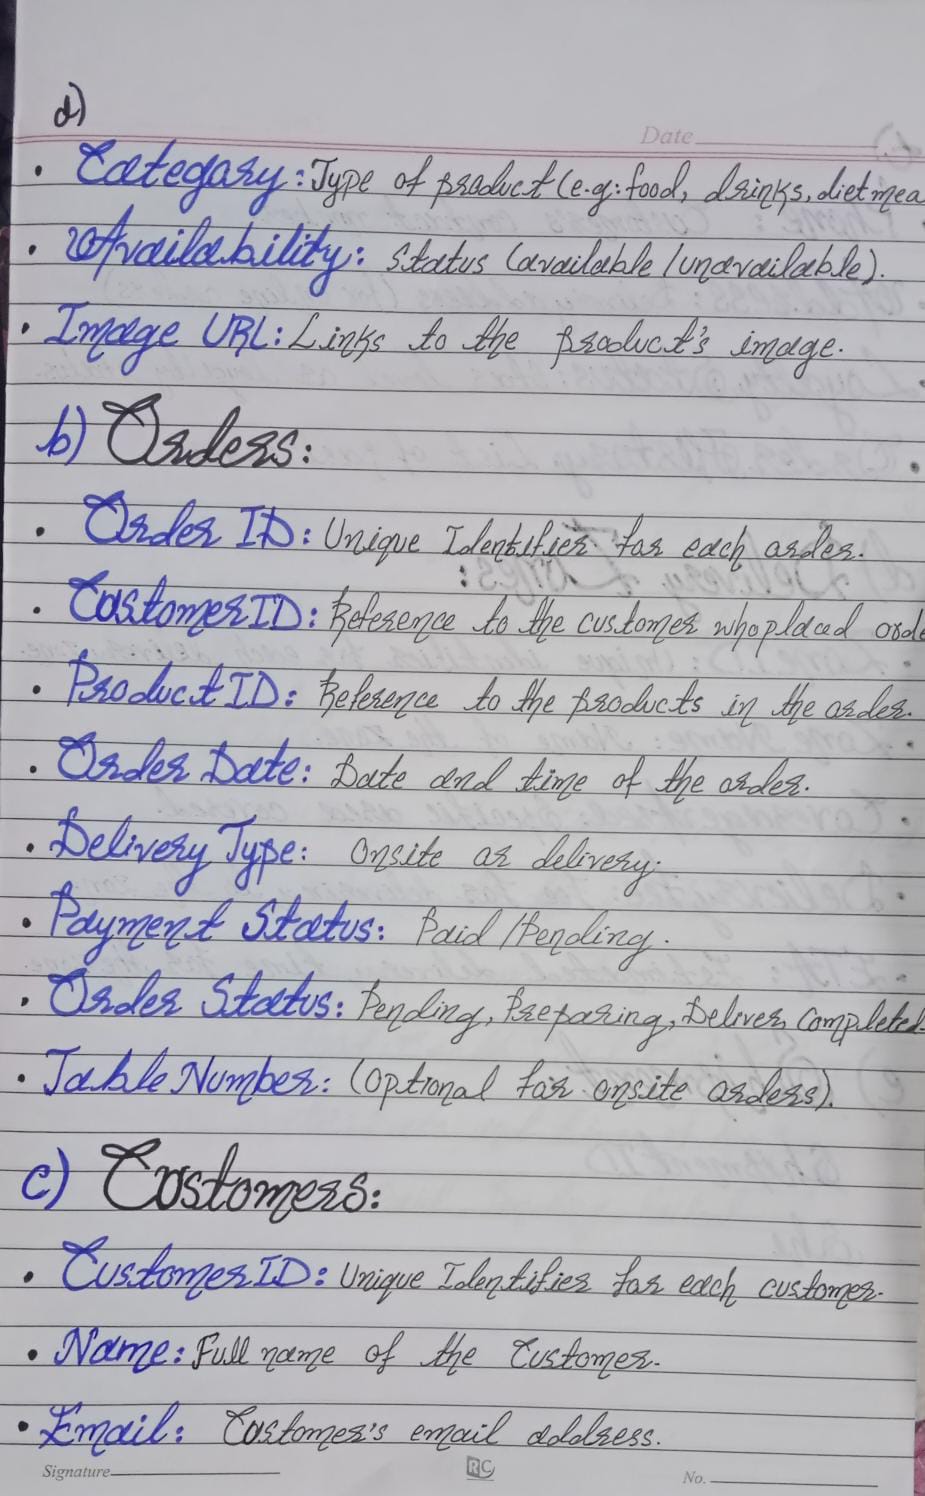 a)
Date
• Category: Type of product (e.g: food, drinks, diet mea
• Availability: Status (available/unavailable).
• Image URL: Links to the product's image.
b) Orders:
• Order ID: Unique Identifier for each order.
• CustomerID: Reference to the customer who placed orde
• Product ID: Reference to the products in the order.
• Order Date: Date and time of the order.
• Delivery Type: Onsite or delivery.
• Payment Status: Paid/Pending.
• Order Status: Pending, Preparing, Deliver, Completed
• Table Number: (Optional for onsite orders).
c) Customers:
• Customer ID: Unique Identifier for each customer.
• Name: Full name of the Customer.
• Email: Customer's email address.
Signature
RC
No.